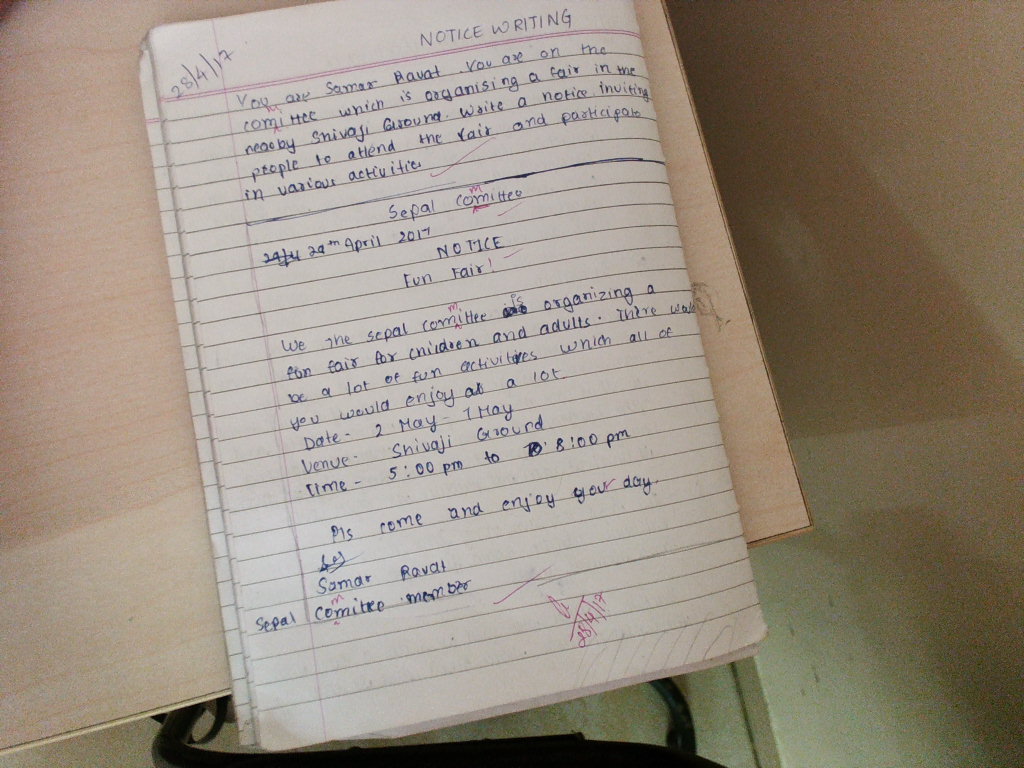 NOTICE WRITING
28/4/17
You are Samar Ravat. You are on the
comittee which is organising a fair in the
nearby Shivaji Ground. Write a notice inviting
people to attend the fair and participate
in various activities
Sepal comittee
29th April 2017
NOTICE
Fun Fair!
We the sepal comittee is organizing a
fun fair for children and adults. There would
be a lot of fun activities which all of
you would enjoy a lot.
Date - 2 May - 7 May
Venue - Shivaji Ground
Time - 5:00 pm to 8:00 pm
Pls come and enjoy your day.
Samar Ravat
Sepal Comittee member